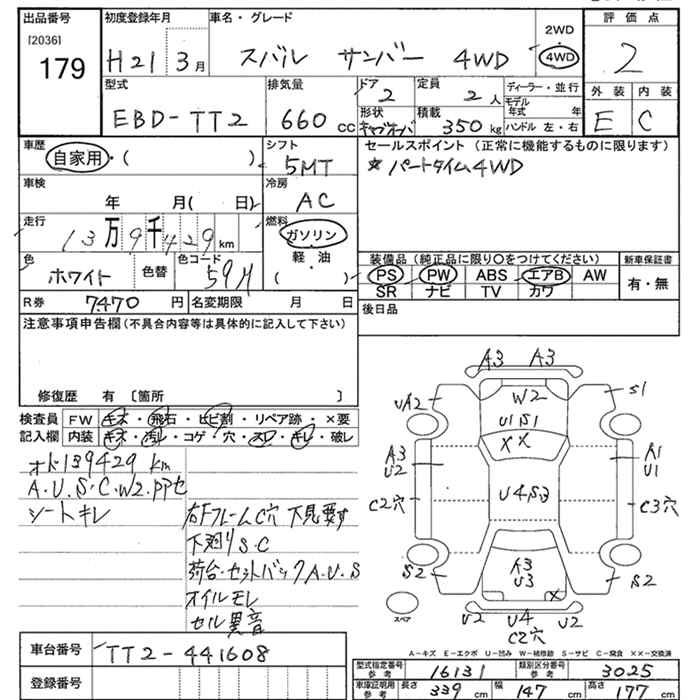 出品番号 初度登録年月 車名・グレード 2WD 評価点
[2036] 179 H21年 3月 スバル サンバー 4WD 4WD 2
型式 排気量 ドア 定員 ディーラー・並行 外装 内装
EBD-TT2 660cc 2 2人 モデル年式 年 E C
形状 キャブオーバ 積載 350kg ハンドル 左・右
車歴 シフト セールスポイント (正常に機能するものに限ります)
自家用・( ) 5MT ☆パートタイム4WD
車検 冷房
年 月( 日) AC
走行 燃料
13万9千429km ガソリン・軽油・( )
色 色替 色コード 装備品 (純正品に限り○をつけてください) 新車保証書
ホワイト 59M PS PW ABS エアB AW 有・無
SR ナビ TV カワ
R券 7470円 名変期限 月 日 後日品
注意事項申告欄 (不具合内容等は具体的に記入して下さい)
修復歴 有 〔箇所 〕
検査員 FW キズ・飛石・ヒビ割・リペア跡・×要
記入欄 内装 キズ・汚レ・コゲ・穴・スレ・キレ・破レ
オド139429km
A.U.S.C.W2.PPセ
シートキレ 右FフレームC穴 下見要す
下廻りS.C
荷台・セットバックA.U.S
オイルモレ
セル異音
A3 A3
UA2 W2 S1
U1S1
XX
A3 A1
U2 U1
C2穴 U4S3 C3穴
A3
U3
S2 X S2
スペア U2 U4 U2
C2穴
A-キズ E-エクボ U-凹み W-補修跡 S-サビ C-腐食 XX-交換済
車台番号 TT2-441608
登録番号
型式指定番号 参考 16131 類別区分番号 参考 3025
車庫証明用 参考 長さ 339cm 幅 147cm 高さ 177cm